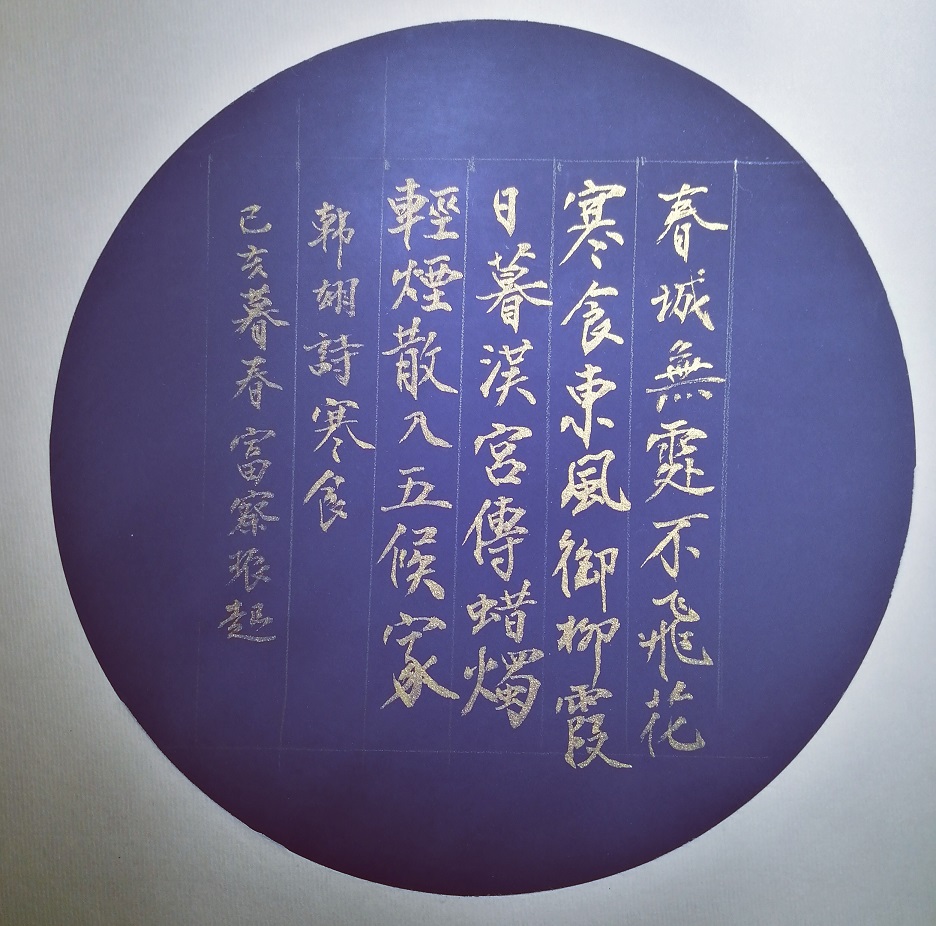 春城無霆不飛花
寒食東風御柳霞
日暮漢宮傳蜡燭
輕煙散入五候家
韩翃詩寒食
己亥暮春富察振起